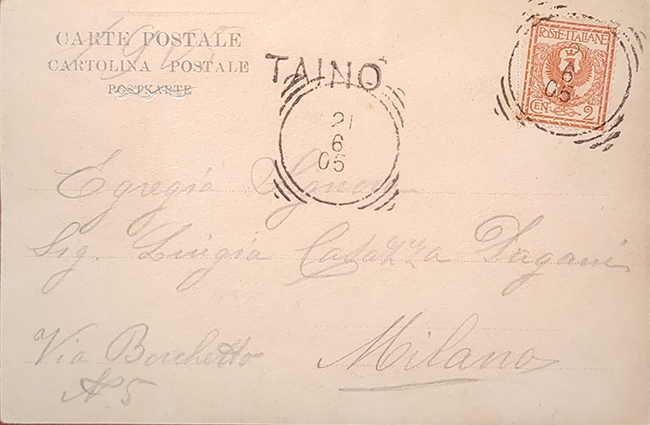 CARTE POSTALE
CARTOLINA POSTALE
POSTKARTE
TAINO
21
6
05
POSTE ITALIANE
21
6
05
CEN. 2
Egregia Signora
Sig. Luigia Casazza Pagani
Via Borchetto
N° 5
Milano